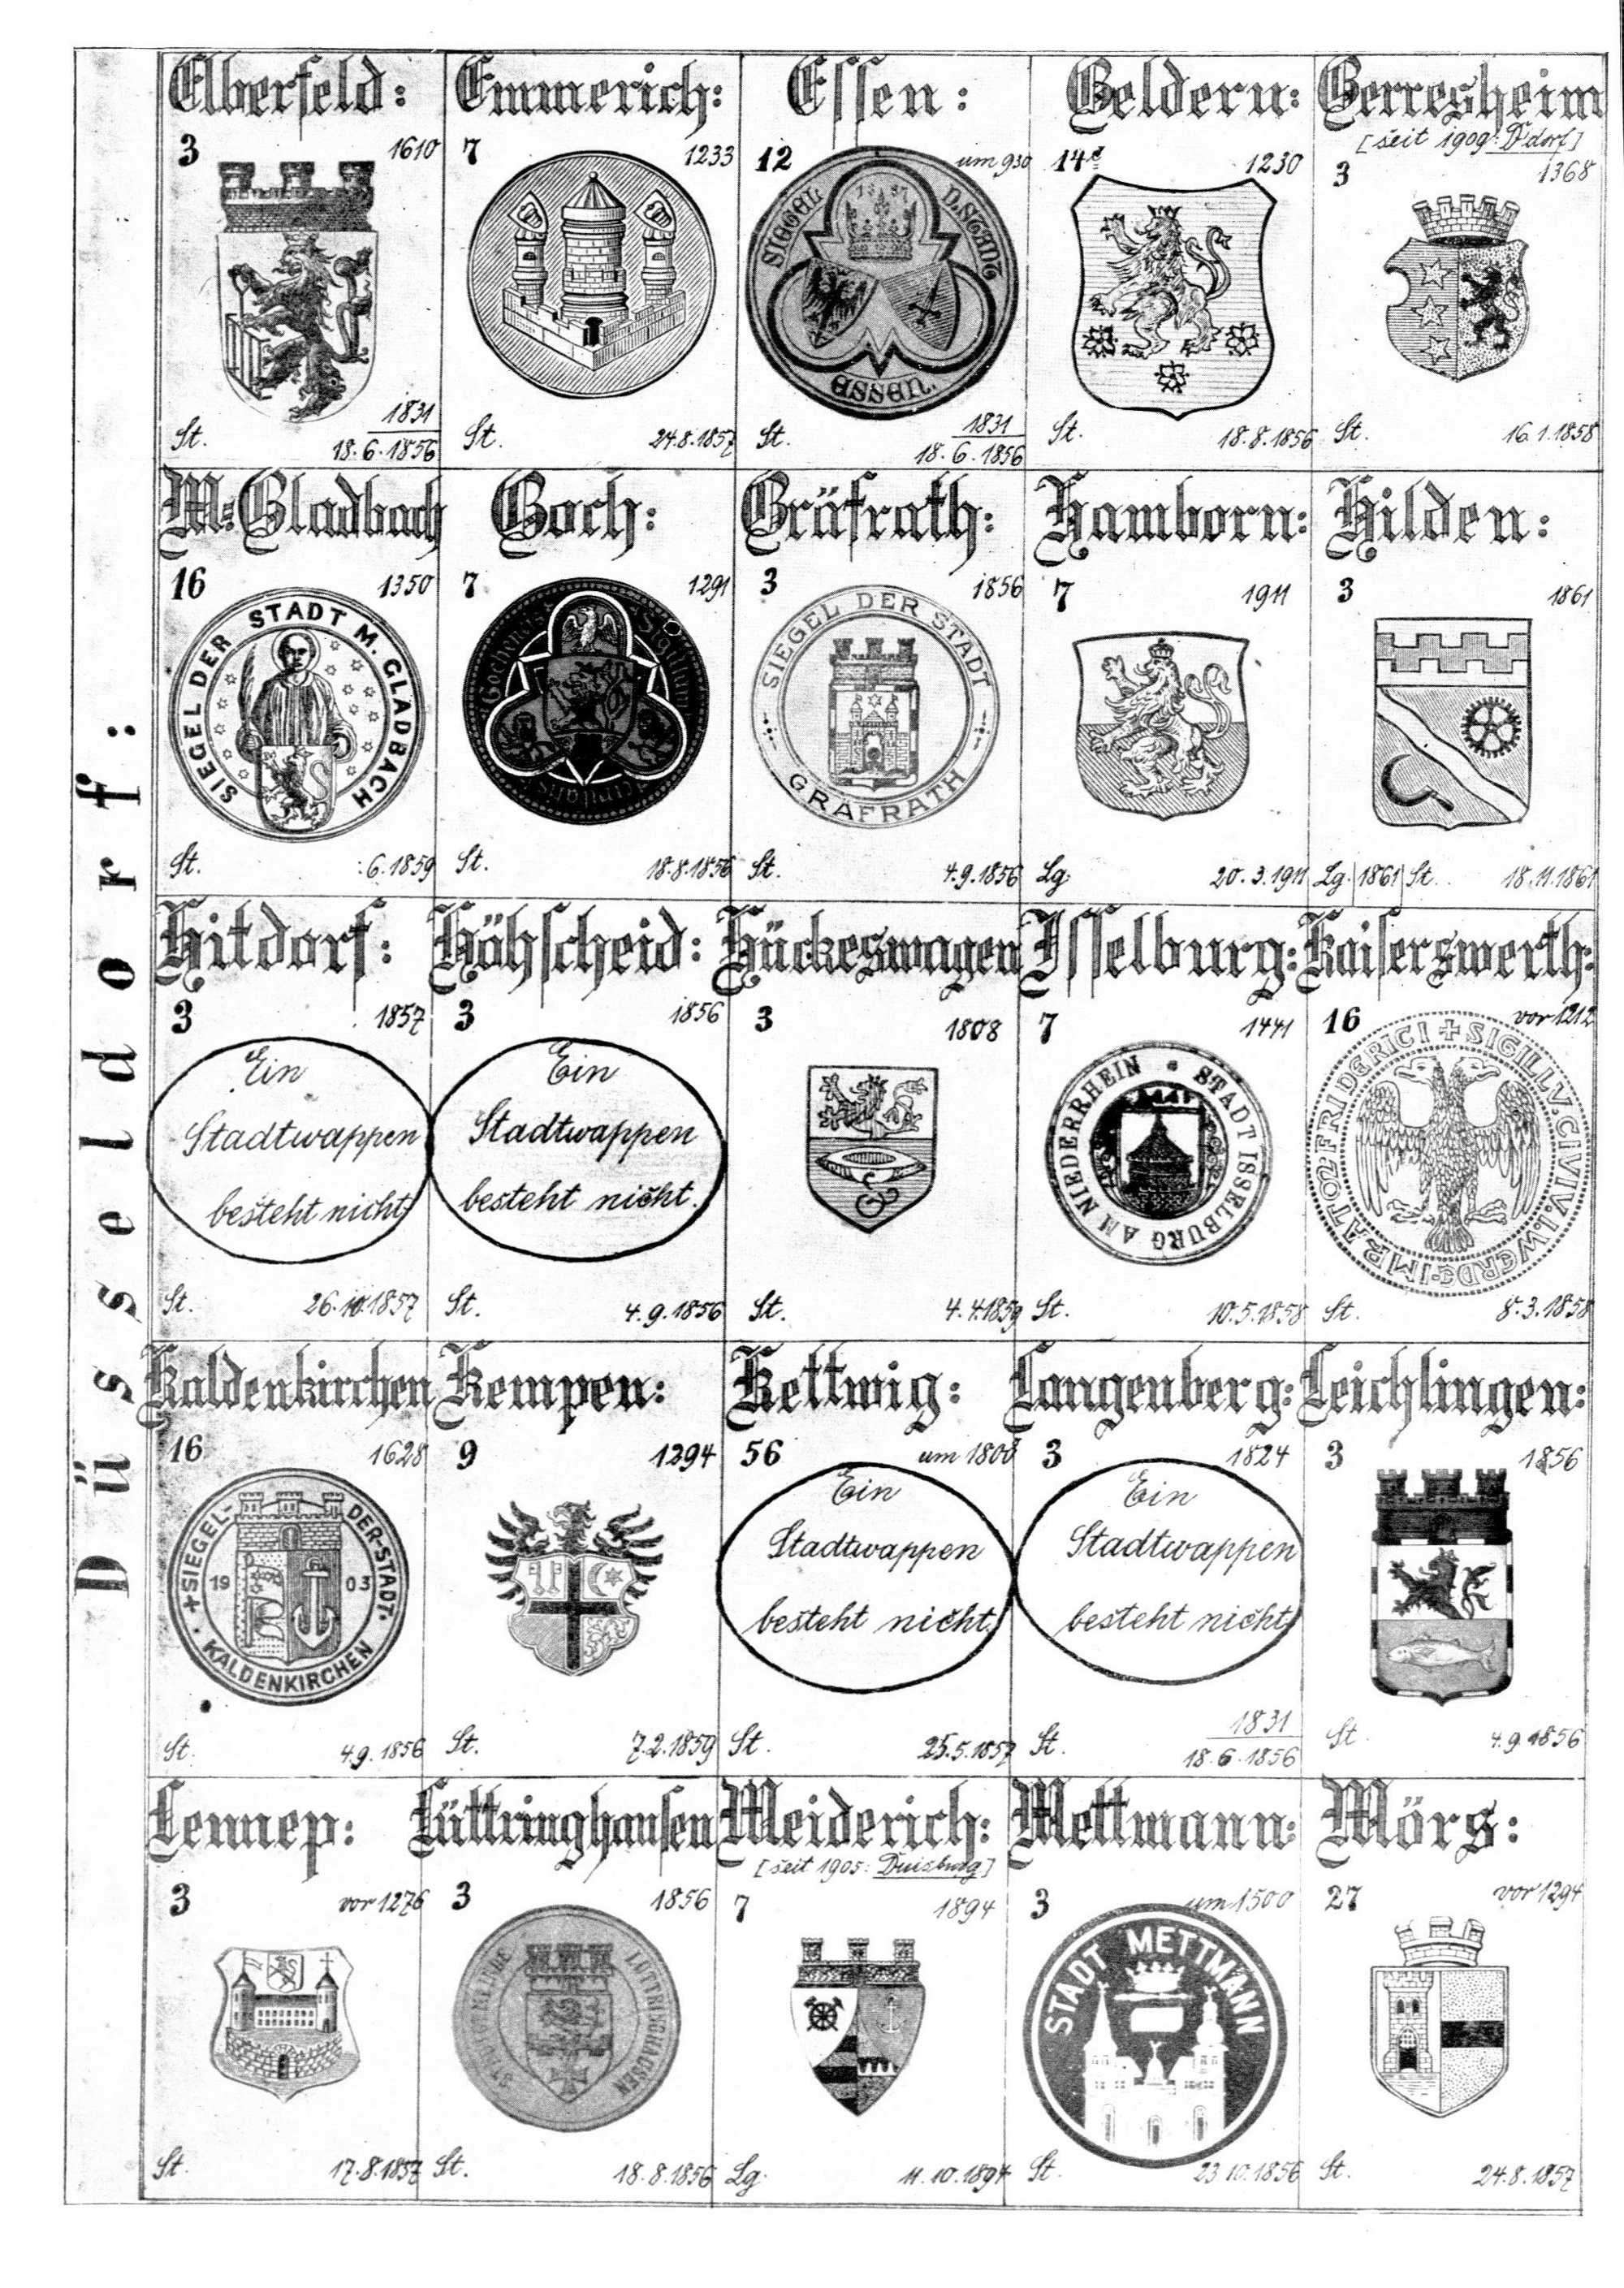 Düsseldorf:
Elberfeld:
3 1610
St. 1831
18.6.1856
Emmerich:
7 1233
St. 24.8.1857
Essen:
12 um 930
SIEGEL D. STADT
ESSEN.
St. 1831
18.6.1856
Geldern:
14d 1230
St. 18.8.1856
Gerresheim
[seit 1909: D'dorf]
3 1368
St. 16.1.1858
M=Gladbach
16 1350
SIEGEL DER STADT M. GLADBACH
St. .6.1859
Goch:
7 1291
St. 18.8.1856
Gräfrath:
3 1856
SIEGEL DER STADT
GRÄFRATH
St. 4.9.1856
Hamborn:
7 1911
Lg. 20.3.1911
Hilden:
3 1861
Lg. |1861| St. 18.11.1861
Hitdorf:
3 1857
Ein
Stadtwappen
besteht nicht
St. 26.10.1857
Höhscheid:
3 1856
Ein
Stadtwappen
besteht nicht.
St. 4.9.1856
Hückeswagen
3 1808
St. 4.4.1859
Isselburg:
7 1441
STADT ISSELBURG AM NIEDERRHEIN
St. 10.5.1858
Kaiserswerth:
16 vor 1212
St. 8.3.1858
Kaldenkirchen
16 1628
SIEGEL- DER-STADT-
19 03
KALDENKIRCHEN
St. 4.9.1856
Kempen:
9 1294
St. 7.2.1859
Kettwig:
56 um 1800
Ein
Stadtwappen
besteht nicht
St. 25.5.1857
Langenberg:
3 1824
Ein
Stadtwappen
besteht nicht
St. 1831
18.6.1856
Leichlingen:
3 1856
St. 4.9.1856
Lennep:
3 vor 1276
St. 17.8.1857
Lüttringhausen
3 1856
LÜTTRINGHAUSEN
St. 18.8.1856
Meiderich:
[seit 1905: Duisburg]
7 1894
Lg. 11.10.1894
Mettmann:
3 um 1500
STADT METTMANN
St. 23.10.1856
Mörs:
27 vor 1294
St. 24.8.1857